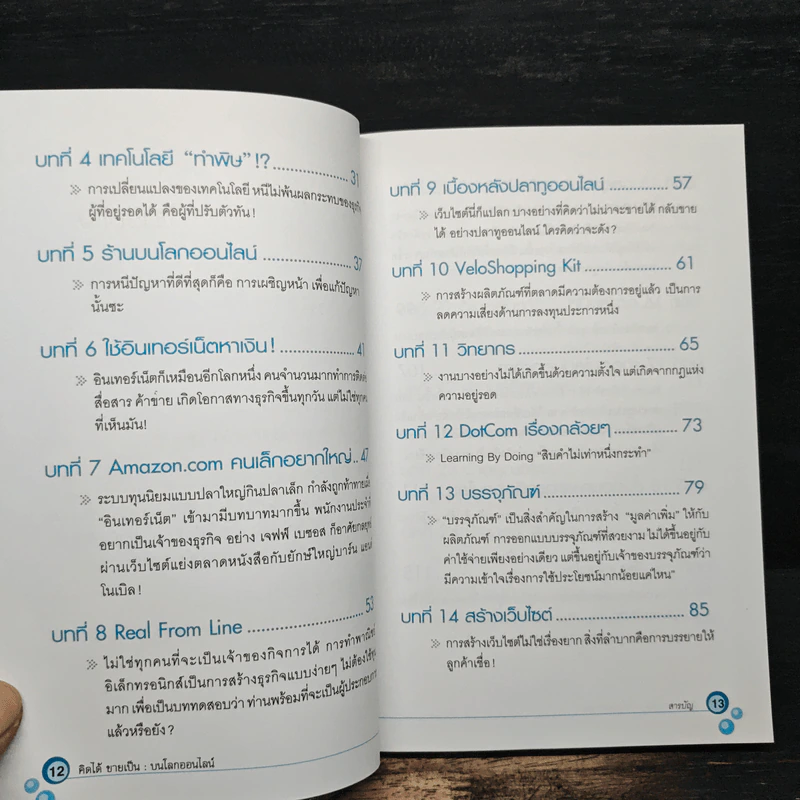 บทที่ 4 เทคโนโลยี “ทำพิษ”!? .................... 31
» การเปลี่ยนแปลงของเทคโนโลยี หนีไม่พ้นผลกระทบของธุรกิจ
ผู้ที่อยู่รอดได้ คือผู้ที่ปรับตัวทัน!
บทที่ 5 ร้านบนโลกออนไลน์ .................... 37
» การหนีปัญหาที่ดีที่สุดก็คือ การเผชิญหน้า เพื่อแก้ปัญหา
นั้นซะ
บทที่ 6 ใช้อินเทอร์เน็ตหาเงิน! .................... 41
» อินเทอร์เน็ตก็เหมือนอีกโลกหนึ่ง คนจำนวนมากทำการ
สื่อสาร ค้าขาย เกิดโอกาสทางธุรกิจขึ้นทุกวัน แต่ไม่ใช่
ที่เห็นมัน!
บทที่ 7 Amazon.com คนเล็กอยากใหญ่.. 47
» ระบบทุนนิยมแบบปลาใหญ่กินปลาเล็ก กำลังถูกท้าทาย
“อินเทอร์เน็ต” เข้ามามีบทบาทมากขึ้น พนักงานประจำ
อยากเป็นเจ้าของธุรกิจ อย่าง เจฟฟ์ เบซอส ก็อาศัย
ผ่านเว็บไซต์แย่งตลาดหนังสือกับยักษ์ใหญ่บาร์น
โนเบิล!
บทที่ 8 Real From Line .................... 53
» ไม่ใช่ทุกคนที่จะเป็นเจ้าของกิจการได้ การทำพาณิชย์
อิเล็กทรอนิกส์เป็นการสร้างธุรกิจแบบง่ายๆ ไม่ต้องใช้
มาก เพื่อเป็นบททดสอบว่า ท่านพร้อมที่จะเป็นผู้ประกอบการ
แล้วหรือยัง?
12 คิดได้ ขายเป็น : บนโลกออนไลน์
บทที่ 9 เบื้องหลังปลาทูออนไลน์ ............... 57
» เว็บไซต์นี่ก็แปลก บางอย่างที่คิดว่าไม่น่าจะขายได้ กลับขาย
ได้ อย่างปลาทูออนไลน์ ใครคิดว่าจะดัง?
บทที่ 10 VeloShopping Kit .................... 61
» การสร้างผลิตภัณฑ์ที่ตลาดมีความต้องการอยู่แล้ว เป็นการ
ลดความเสี่ยงด้านการลงทุนประการหนึ่ง
บทที่ 11 วิทยากร .................... 65
» งานบางอย่างไม่ได้เกิดขึ้นด้วยความตั้งใจ แต่เกิดจากกฎแห่ง
ความอยู่รอด
บทที่ 12 DotCom เรื่องกล้วยๆ ............... 73
» Learning By Doing “สิบคำไม่เท่าหนึ่งกระทำ”
บทที่ 13 บรรจุภัณฑ์ .................... 79
» “บรรจุภัณฑ์” เป็นสิ่งสำคัญในการสร้าง “มูลค่าเพิ่ม” ให้กับ
ผลิตภัณฑ์ การออกแบบบรรจุภัณฑ์ที่สวยงาม ไม่ได้ขึ้นอยู่กับ
ค่าใช้จ่ายเพียงอย่างเดียว แต่ขึ้นอยู่กับเจ้าของบรรจุภัณฑ์ว่า
มีความเข้าใจเรื่องการใช้ประโยชน์มากน้อยแค่ไหน”
บทที่ 14 สร้างเว็บไซต์ .................... 85
» การสร้างเว็บไซต์ไม่ใช่เรื่องยาก สิ่งที่ลำบากคือการบรรยายให้
ลูกค้าเชื่อ!
สารบัญ 13